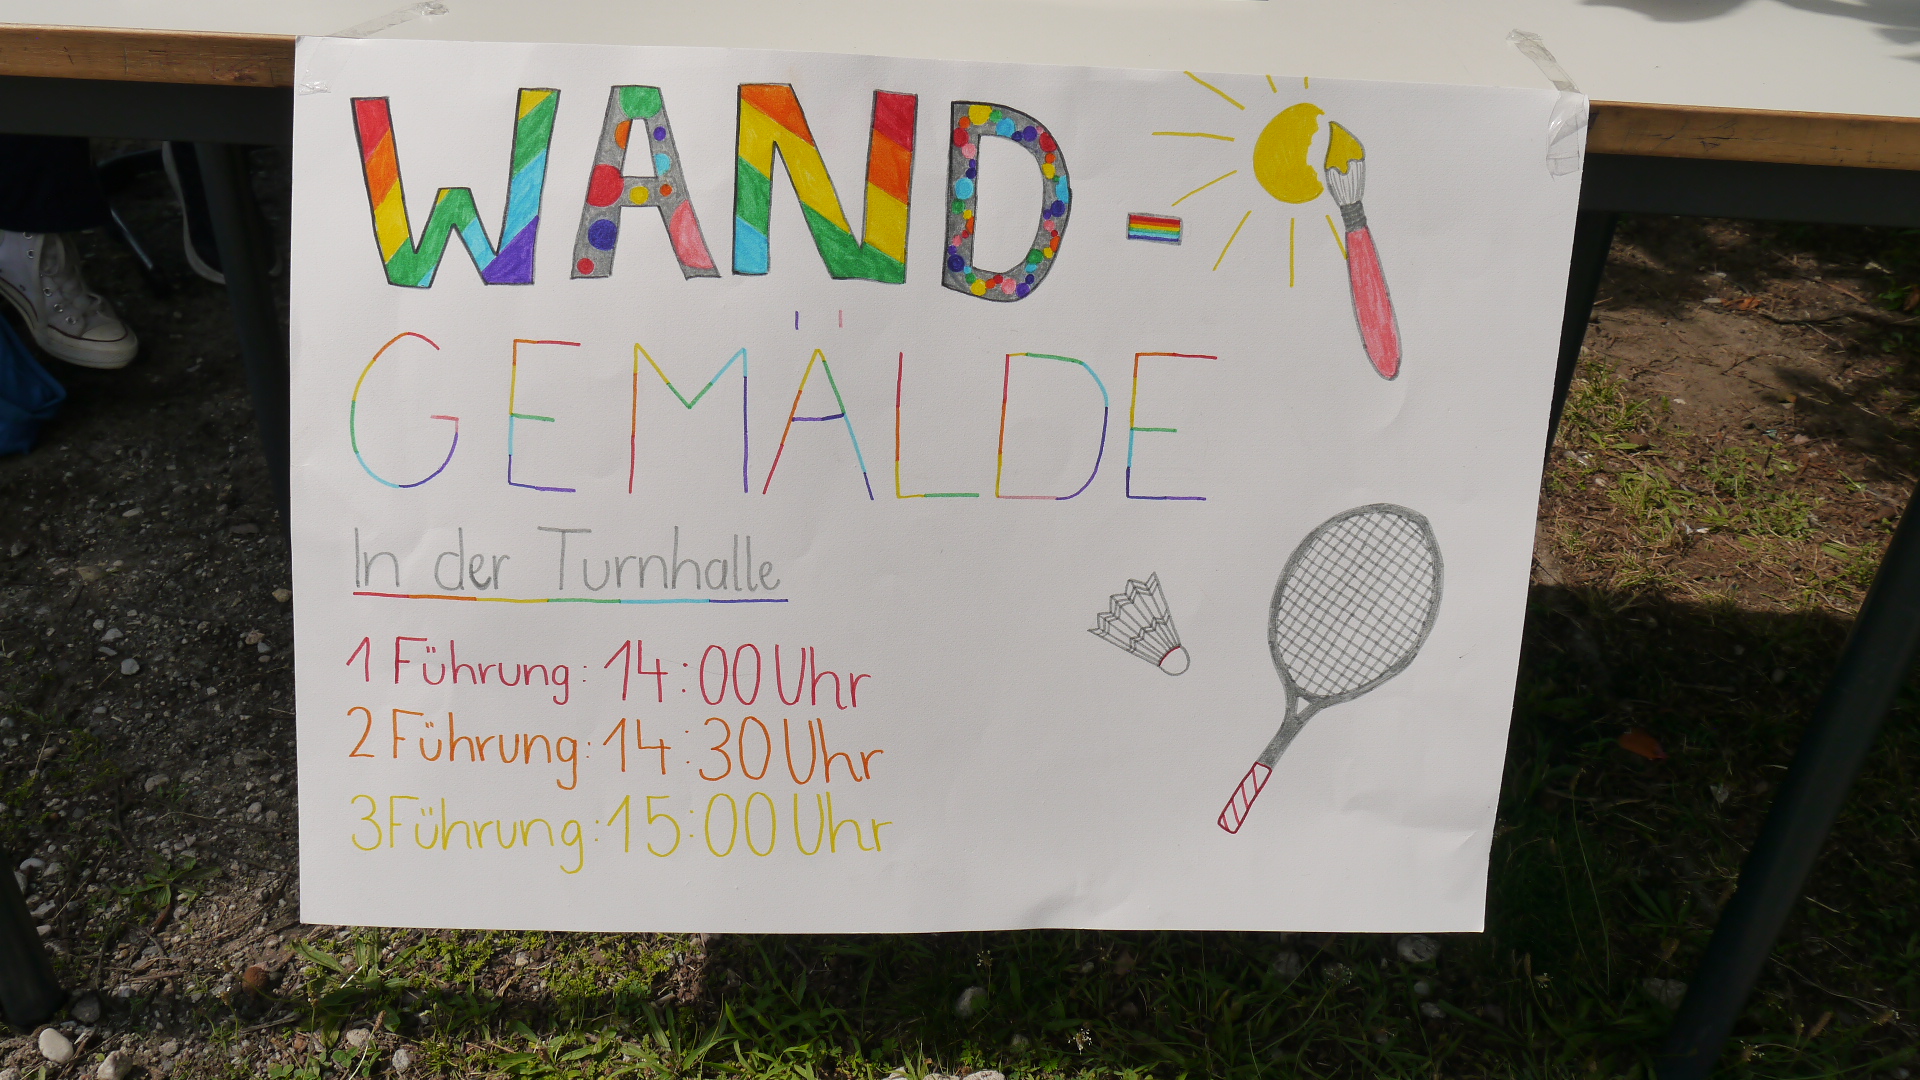 WAND-
GEMÄLDE
In der Turnhalle
1 Führung: 14:00 Uhr
2 Führung: 14:30 Uhr
3 Führung: 15:00 Uhr